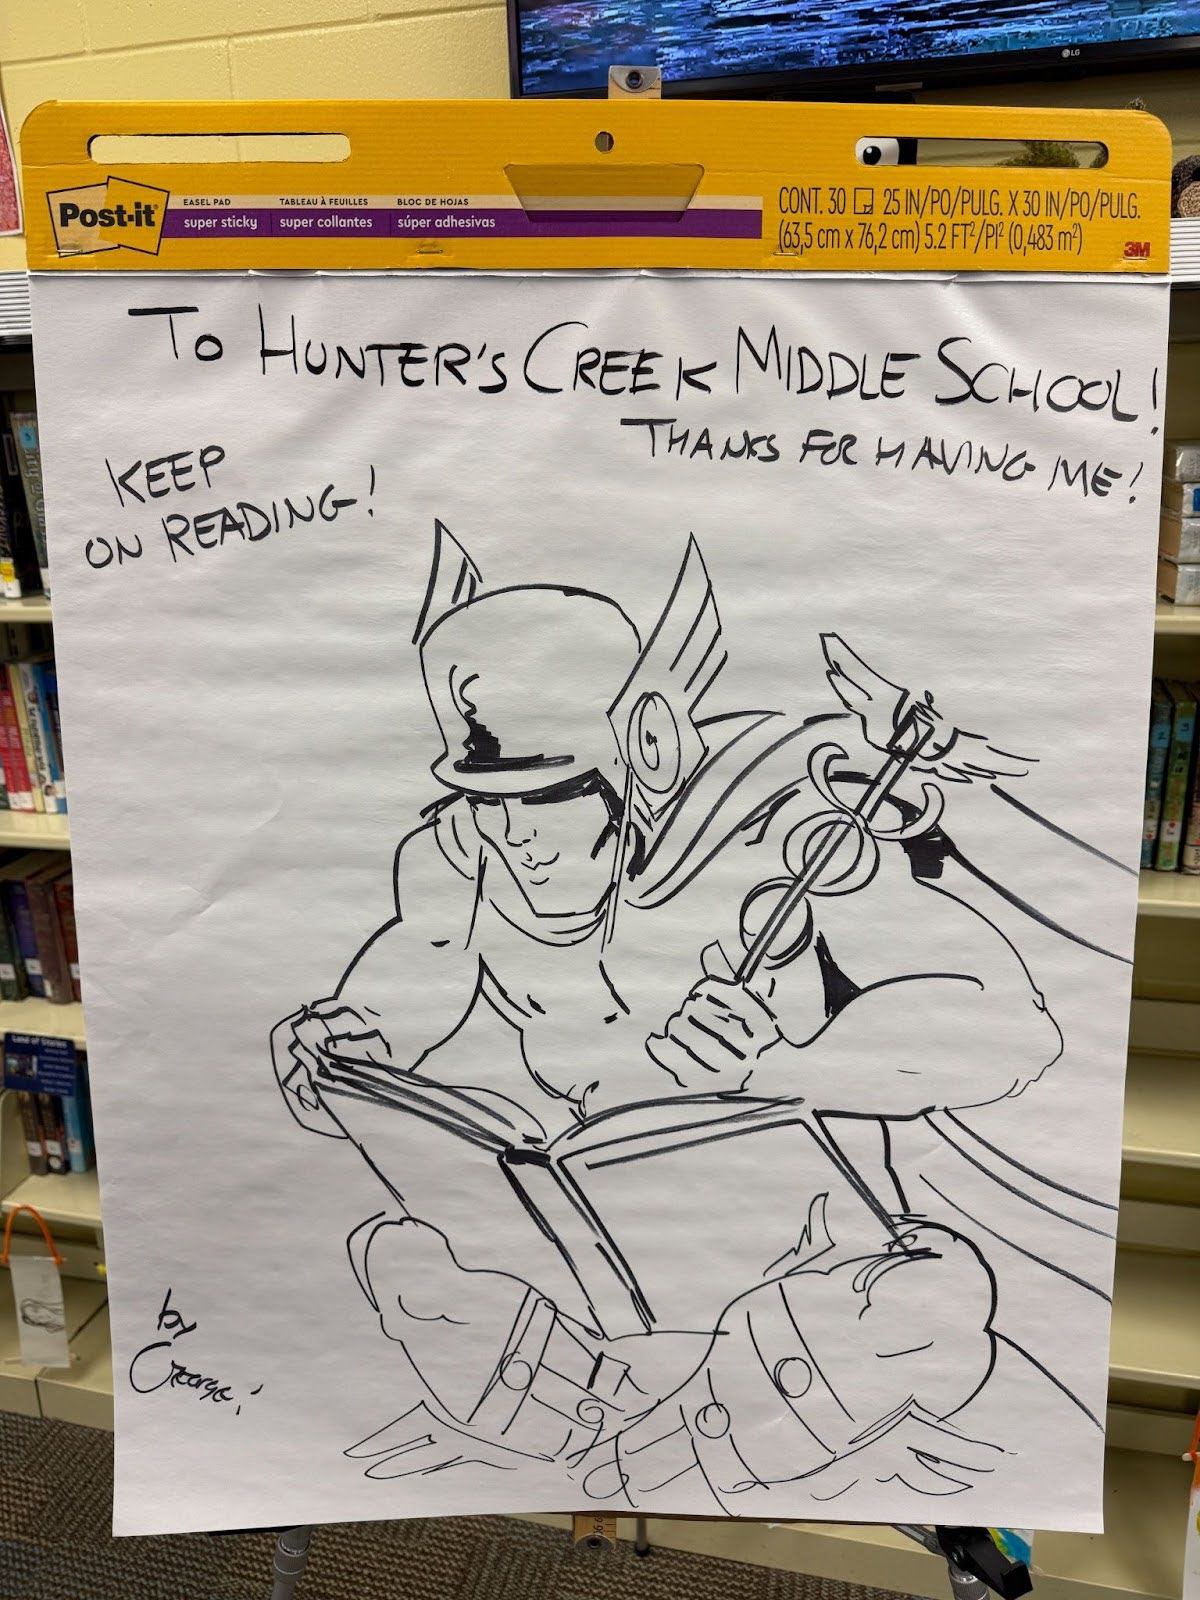 LG
Post-it
EASEL PAD TABLEAU À FEUILLES BLOC DE HOJAS
super sticky super collantes súper adhesivas
CONT. 30 25 IN/PO/PULG. X 30 IN/PO/PULG.
(63,5 cm x 76,2 cm) 5.2 FT²/PI² (0,483 m²)
3M
TO HUNTER'S CREEK MIDDLE SCHOOL!
THANKS FOR HAVING ME!
KEEP
ON READING!
by
George
Land of Stories